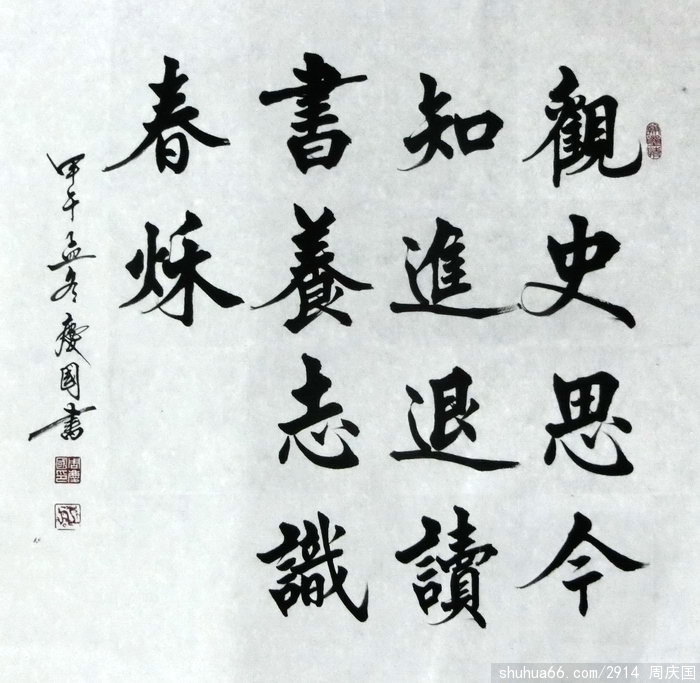 觀史思今
知進退讀
書養志識
春秌
甲午孟冬慶國書
shuhua66.com/2914 周庆国